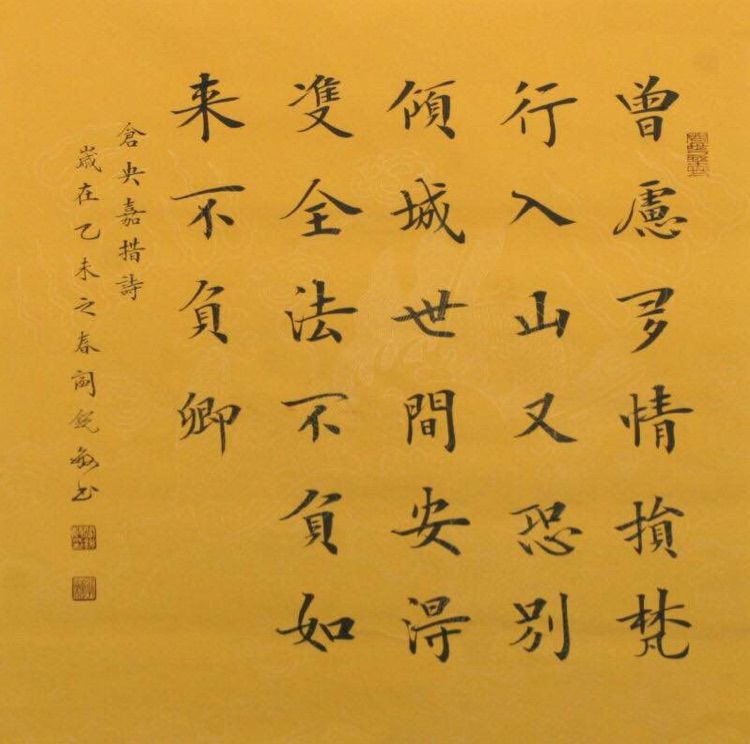 曾慮多情損梵
行入山又恐別
傾城世間安淂
雙全法不負如
来不負卿
倉央嘉措詩
嵗在乙未之春銳敏书